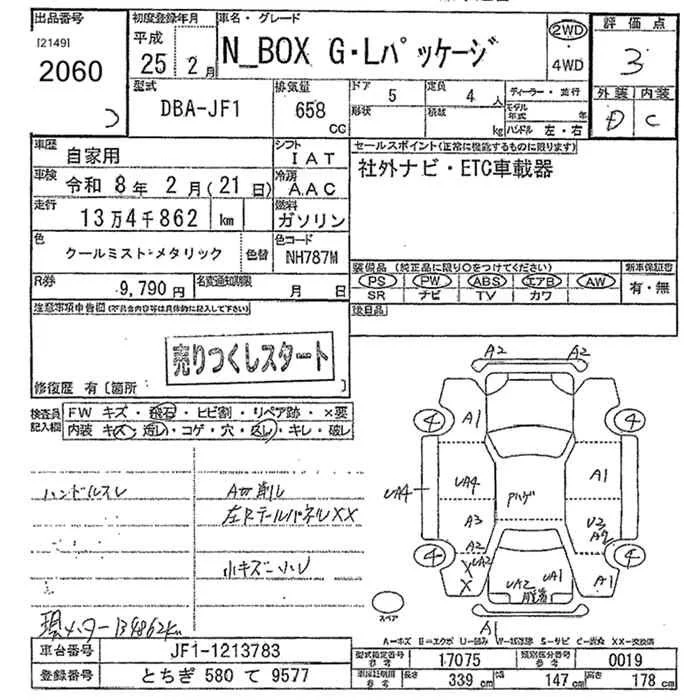 出品番号
[2149]
2060
初度登録年月
平成
25年 2月
車名・グレード
N_BOX G・Lパッケージ
2WD
・
4WD
評価点
3
外装 内装
D C
型式
DBA-JF1
排気量
658
CC
ドア
5
定員
4 人
形状
積載
kg
ディーラー・並行
モデル年式 年
ハンドル 左・右
車歴
自家用
シフト
IAT
セールスポイント(正常に機能するものに限ります)
社外ナビ・ETC車載器
車検
令和 8年 2月(21日)
冷房
AAC
走行
13万4千862 km
燃料
ガソリン
色
クールミスト・メタリック
色替
色コード
NH787M
R券
9,790円
名変通知期限
月 日
装備品 (純正品に限り○をつけてください)
PS PW ABS エアB AW
SR ナビ TV カワ
新車保証書
有・無
後日品
注意事項申告欄(不具合内容等は具体的に記入して下さい)
売りつくしスタート
修復歴 有[箇所 ]
検査員記入欄
FW キズ・飛石・ヒビ割・リペア跡・×要
内装 キズ・汚れ・コゲ・穴・スレ・キレ・破レ
ハンドルスレ
A凹削レ
左Rテールパネル XX
小キズ 小凹
現メーター134862km
A2 A2
4 4
A1
UA4
UA4
A1
Pハゲ
A3
U2
A2
A2
4 4
X UA2
X
UA2 UA1
A1
A1
スペア
A=キズ E=エクボ U=凹み W=波修跡 S=サビ C=腐食 XX=交換済
車台番号
JF1-1213783
登録番号
とちぎ 580 て 9577
型式指定番号
参考
17075
類別区分番号
参考
0019
車検証明用
参考
長さ
339 cm
幅
147 cm
高さ
178 cm